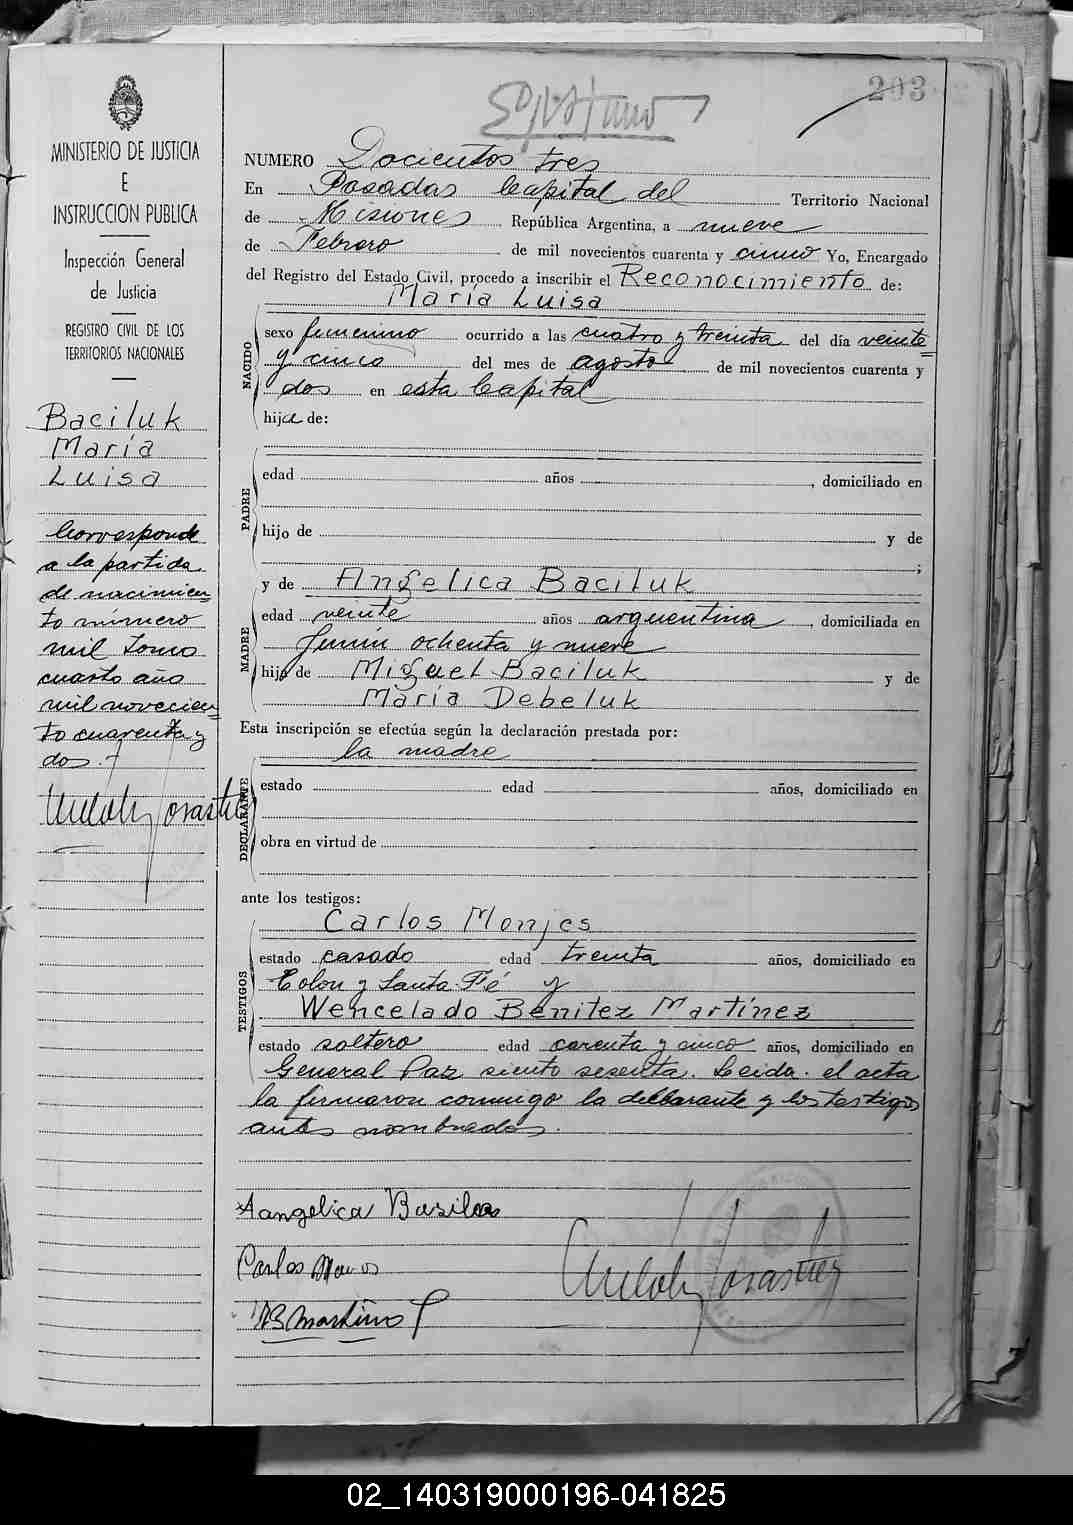 MINISTERIO DE JUSTICIA
E
INSTRUCCION PUBLICA
Inspección General
de Justicia
REGISTRO CIVIL DE LOS
TERRITORIOS NACIONALES
Baciluk
María
Luisa
Corresponde
a la partida
de nacimien=
to número
mil tomo
cuarto año
mil novecien=
to cuarenta y
dos.-
203
NUMERO Docientos tres
En Posadas Capital del Territorio Nacional
de Misiones República Argentina, a nueve
de Febrero de mil novecientos cuarenta y cinco Yo, Encargado
del Registro del Estado Civil, procedo a inscribir el Reconocimiento de:
María Luisa
NACIDO
sexo femenino ocurrido a las cuatro y treinta del día veinte=
y cinco del mes de agosto de mil novecientos cuarenta y
dos en esta Capital
hija de:
PADRE
edad años , domiciliado en
hijo de y de
;
y de Angelica Baciluk
MADRE
edad veinte años arguentina , domiciliada en
Junin ochenta y nueve
hijo de Miguel Baciluk y de
María Debeluk
Esta inscripción se efectúa según la declaración prestada por:
la madre
DECLARANTE
estado edad años, domiciliado en
obra en virtud de
ante los testigos:
Carlos Monjes
TESTIGOS
estado casado edad treinta años, domiciliado en
Colon y Santa Fé y
Wencelado Benitez Martínez
estado soltero edad carenta y cinco años, domiciliado en
General Paz siento sesenta. Leida el acta
la firmaron conmigo la declarante y los testigos
antes nombrados.
Aangelica
Carlos
02_140319000196-041825